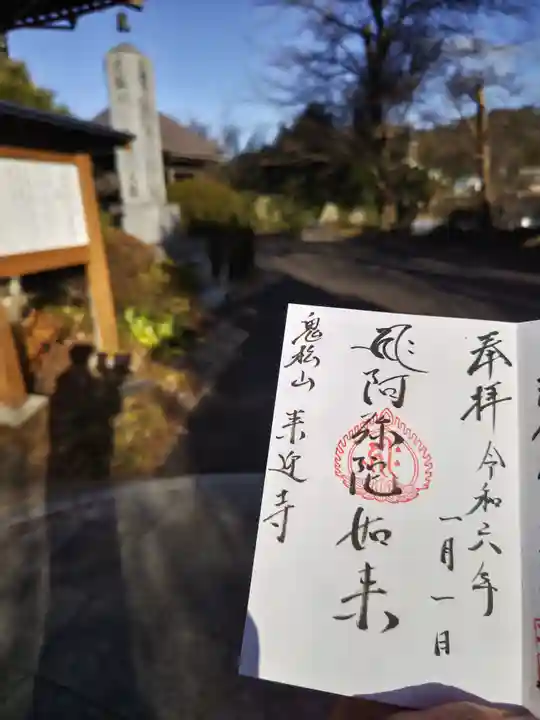 奉拝
令和六年
一月一日
阿弥陀如来
鬼松山 来迎寺